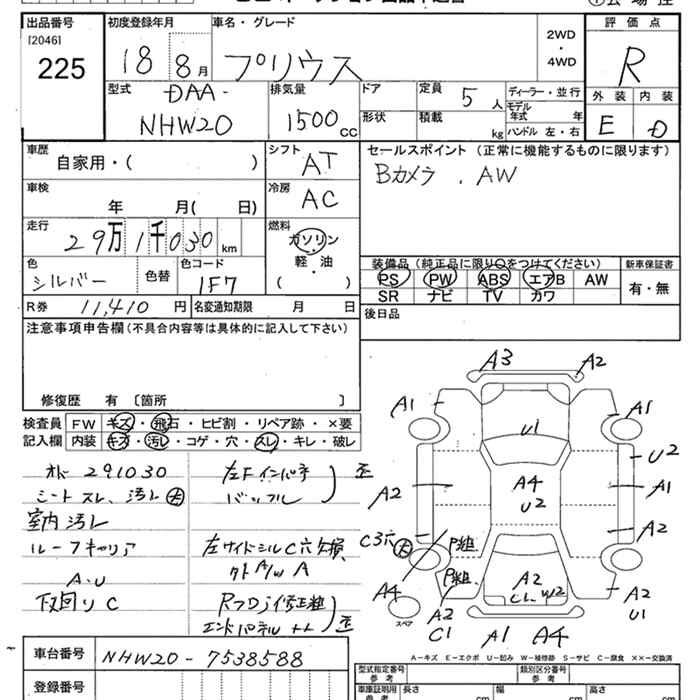 出品番号 初度登録年月 車名・グレード 2WD・4WD 評価点
[2046]
225 18 8月 プリウス R
型式 DAA-NHW20 排気量 1500cc ドア 定員 5人 ディーラー・並行 外装 内装
形状 積載 kg モデル年式 年 E D
ハンドル 左・右
車歴 自家用・( ) シフト AT セールスポイント (正常に機能するものに限ります)
車検 年 月( 日) 冷房 AC Bカメラ . AW
走行 29万1千030km 燃料 ガソリン・軽・油 ( )
色 シルバー 色替 色コード 1F7
装備品 (純正品に限り○をつけてください) 新車保証書
PS PW ABS エアB AW 有・無
SR ナビ TV カワ
R券 11,410円 名変通知期限 月 日 後日品
注意事項申告欄(不具合内容等は具体的に記入して下さい)
修復歴 有 〔箇所 〕
検査員 FW キズ・飛石・ヒビ割・リペア跡・×要
記入欄 内装 キズ・汚レ・コゲ・穴・スレ・キレ・破レ
オドー 291030
シートスレ、汚レ 大
室内汚レ
ルーフキャリア
A.U
下回りC
左Fインパネ
バッフル
歪
左サイドシルC穴欠損
外A/W A
エンドパネル
歪
A3
A2
A1
A1
U1
U2
A4
U2
A2
A1
A2
C3穴 大
P組
P組
A4
A2
C1
A2
C1 W2
A2
U1
A1
A4
スペア
A―キズ E―エクボ U―凹み W―補修跡 S―サビ C―腐食 ××―交換済
車台番号 NHW20-7538588
登録番号
型式指定番号 参考 類別区分番号 参考
車庫証明用 参考 長さ cm 幅 cm 高さ cm